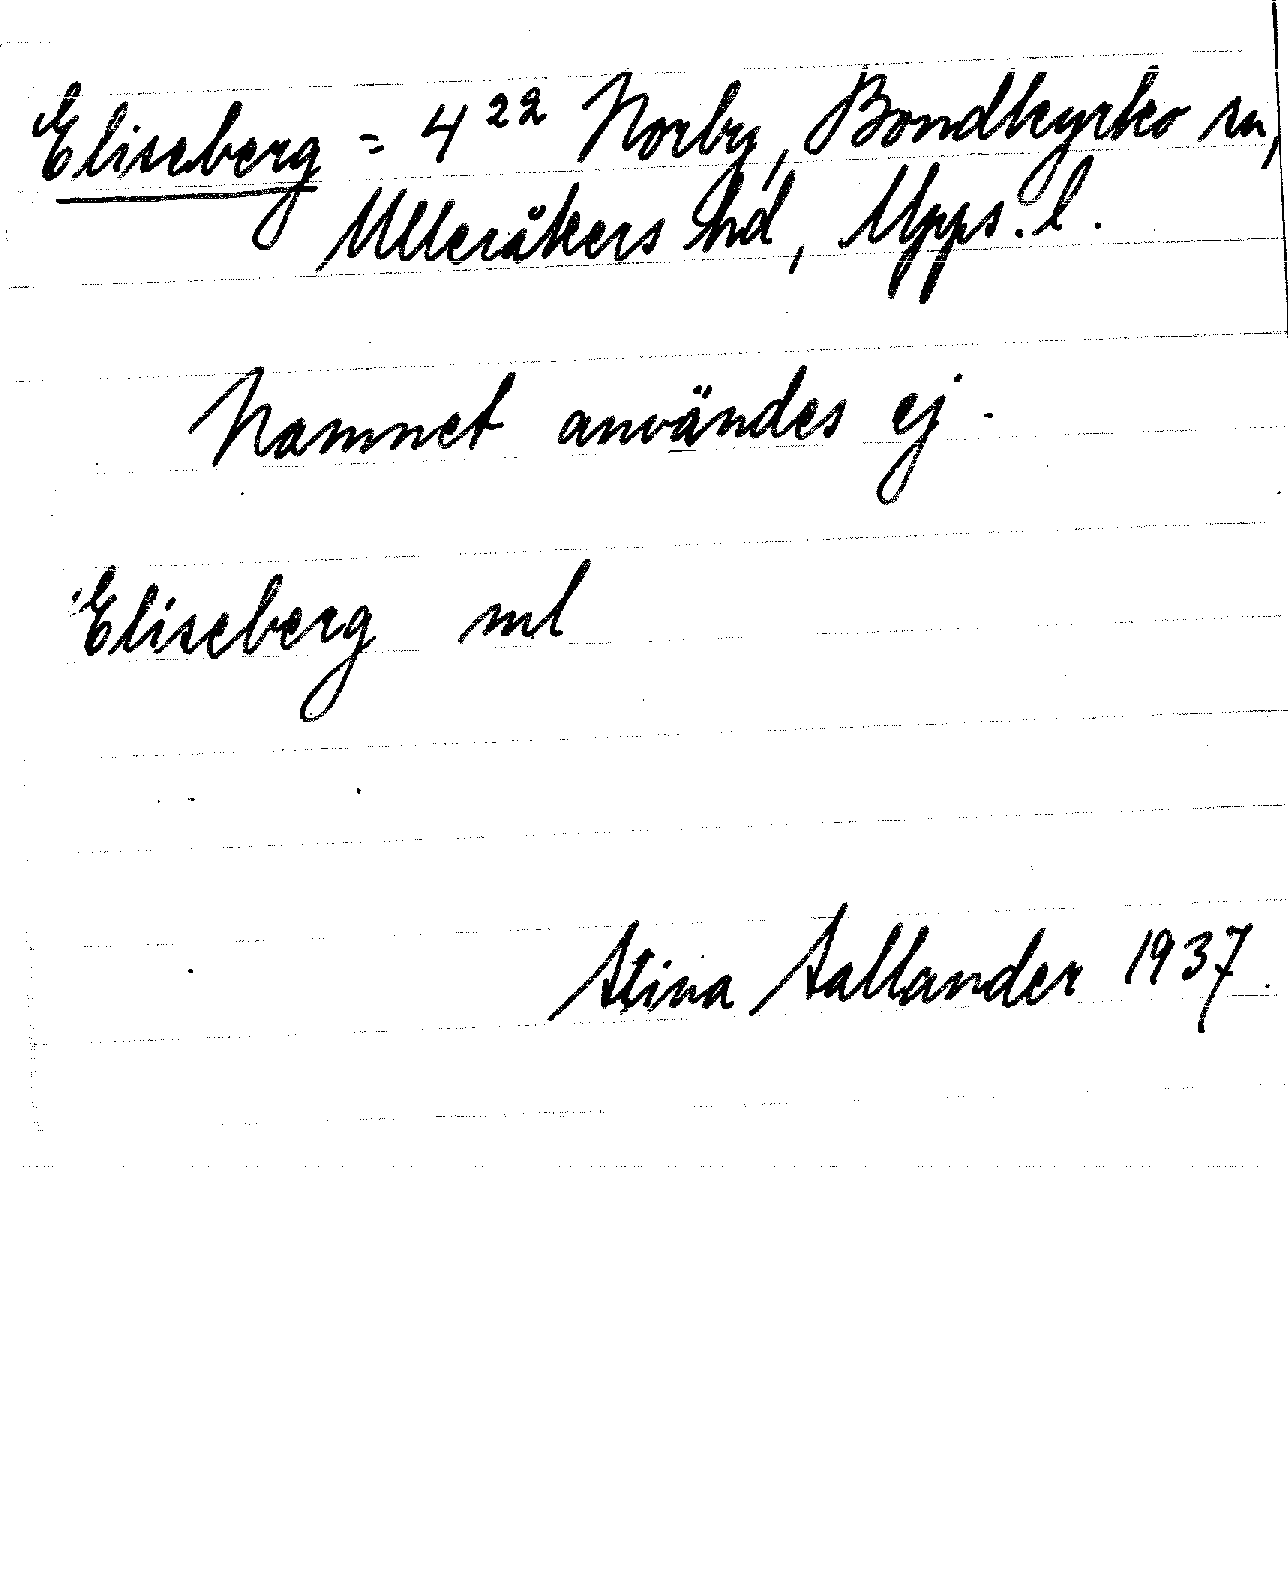 Eliseberg = 4²² Norby, Bondkyrko sn,
Ulleråkers hd, Upps. l.
Namnet användes ej.
Eliseberg ml
Stina Sallander 1937.